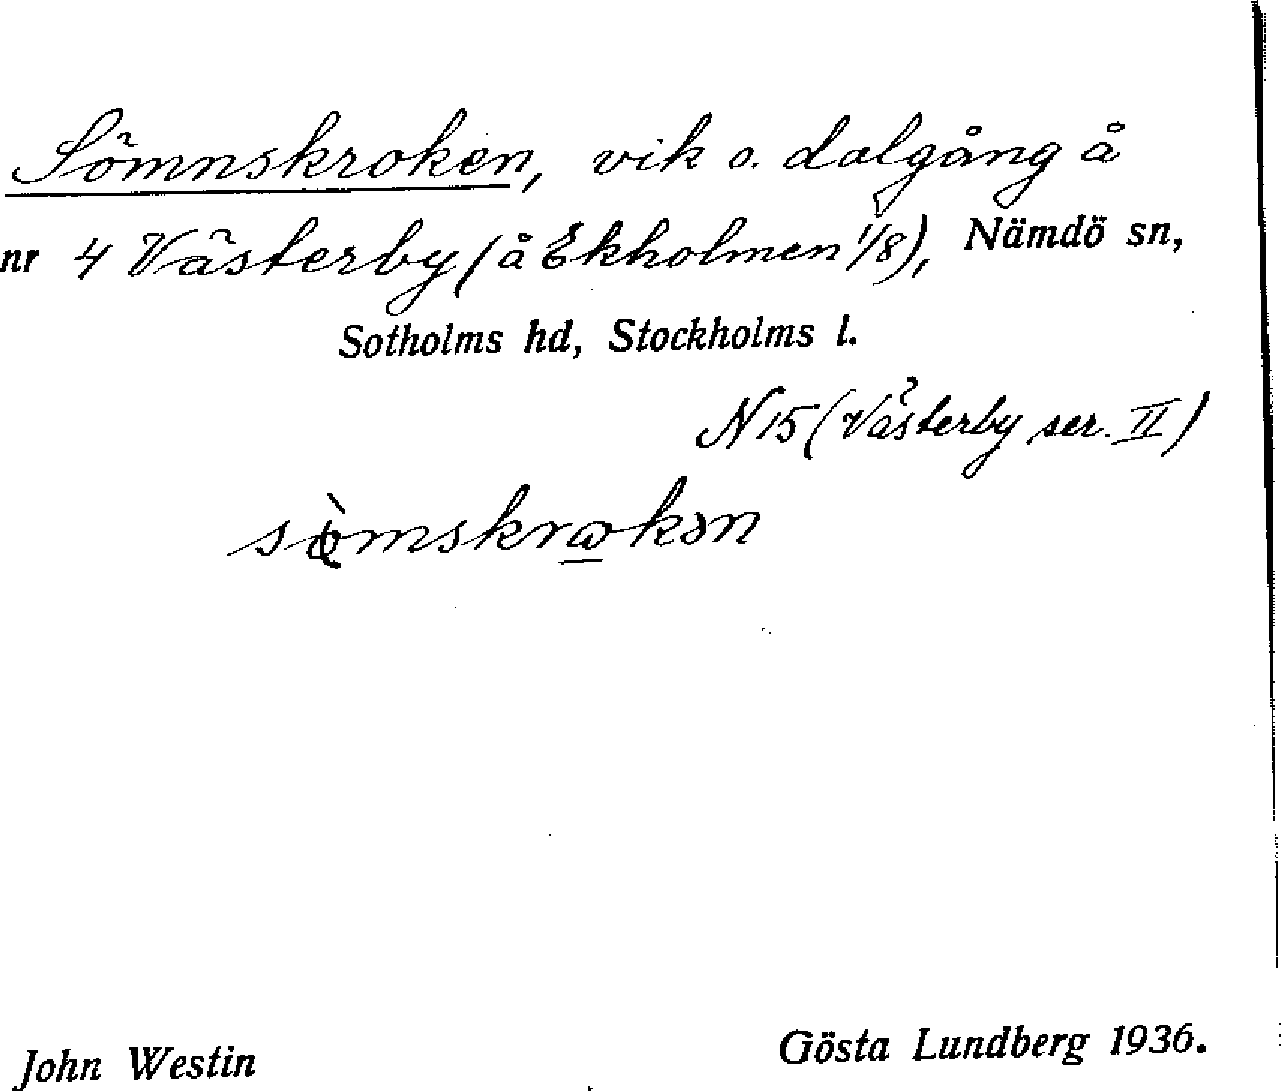 Sömnskroken, vik o. dalgång å
nr 4 Västerby (å Ekholmen 1/8), Nämdö sn,
Sotholms hd, Stockholms l.
N 15 (Västerby ser. II)
John Westin
Gösta Lundberg 1936.